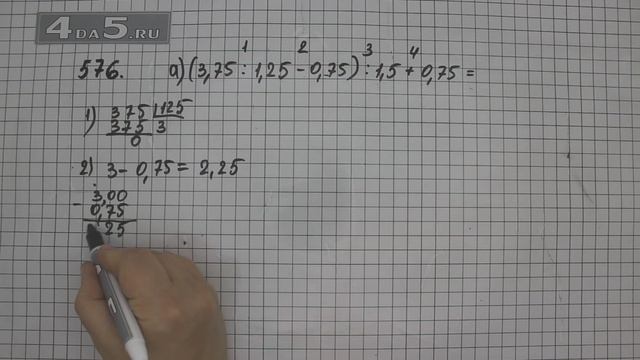 4ДА5.RU
1 2 3 4
576. а) (3,75 : 1,25 - 0,75) : 1,5 + 0,75 =
1) 375 125
375 3
0
2) 3 - 0,75 = 2,25
- 3,00
0,75
25